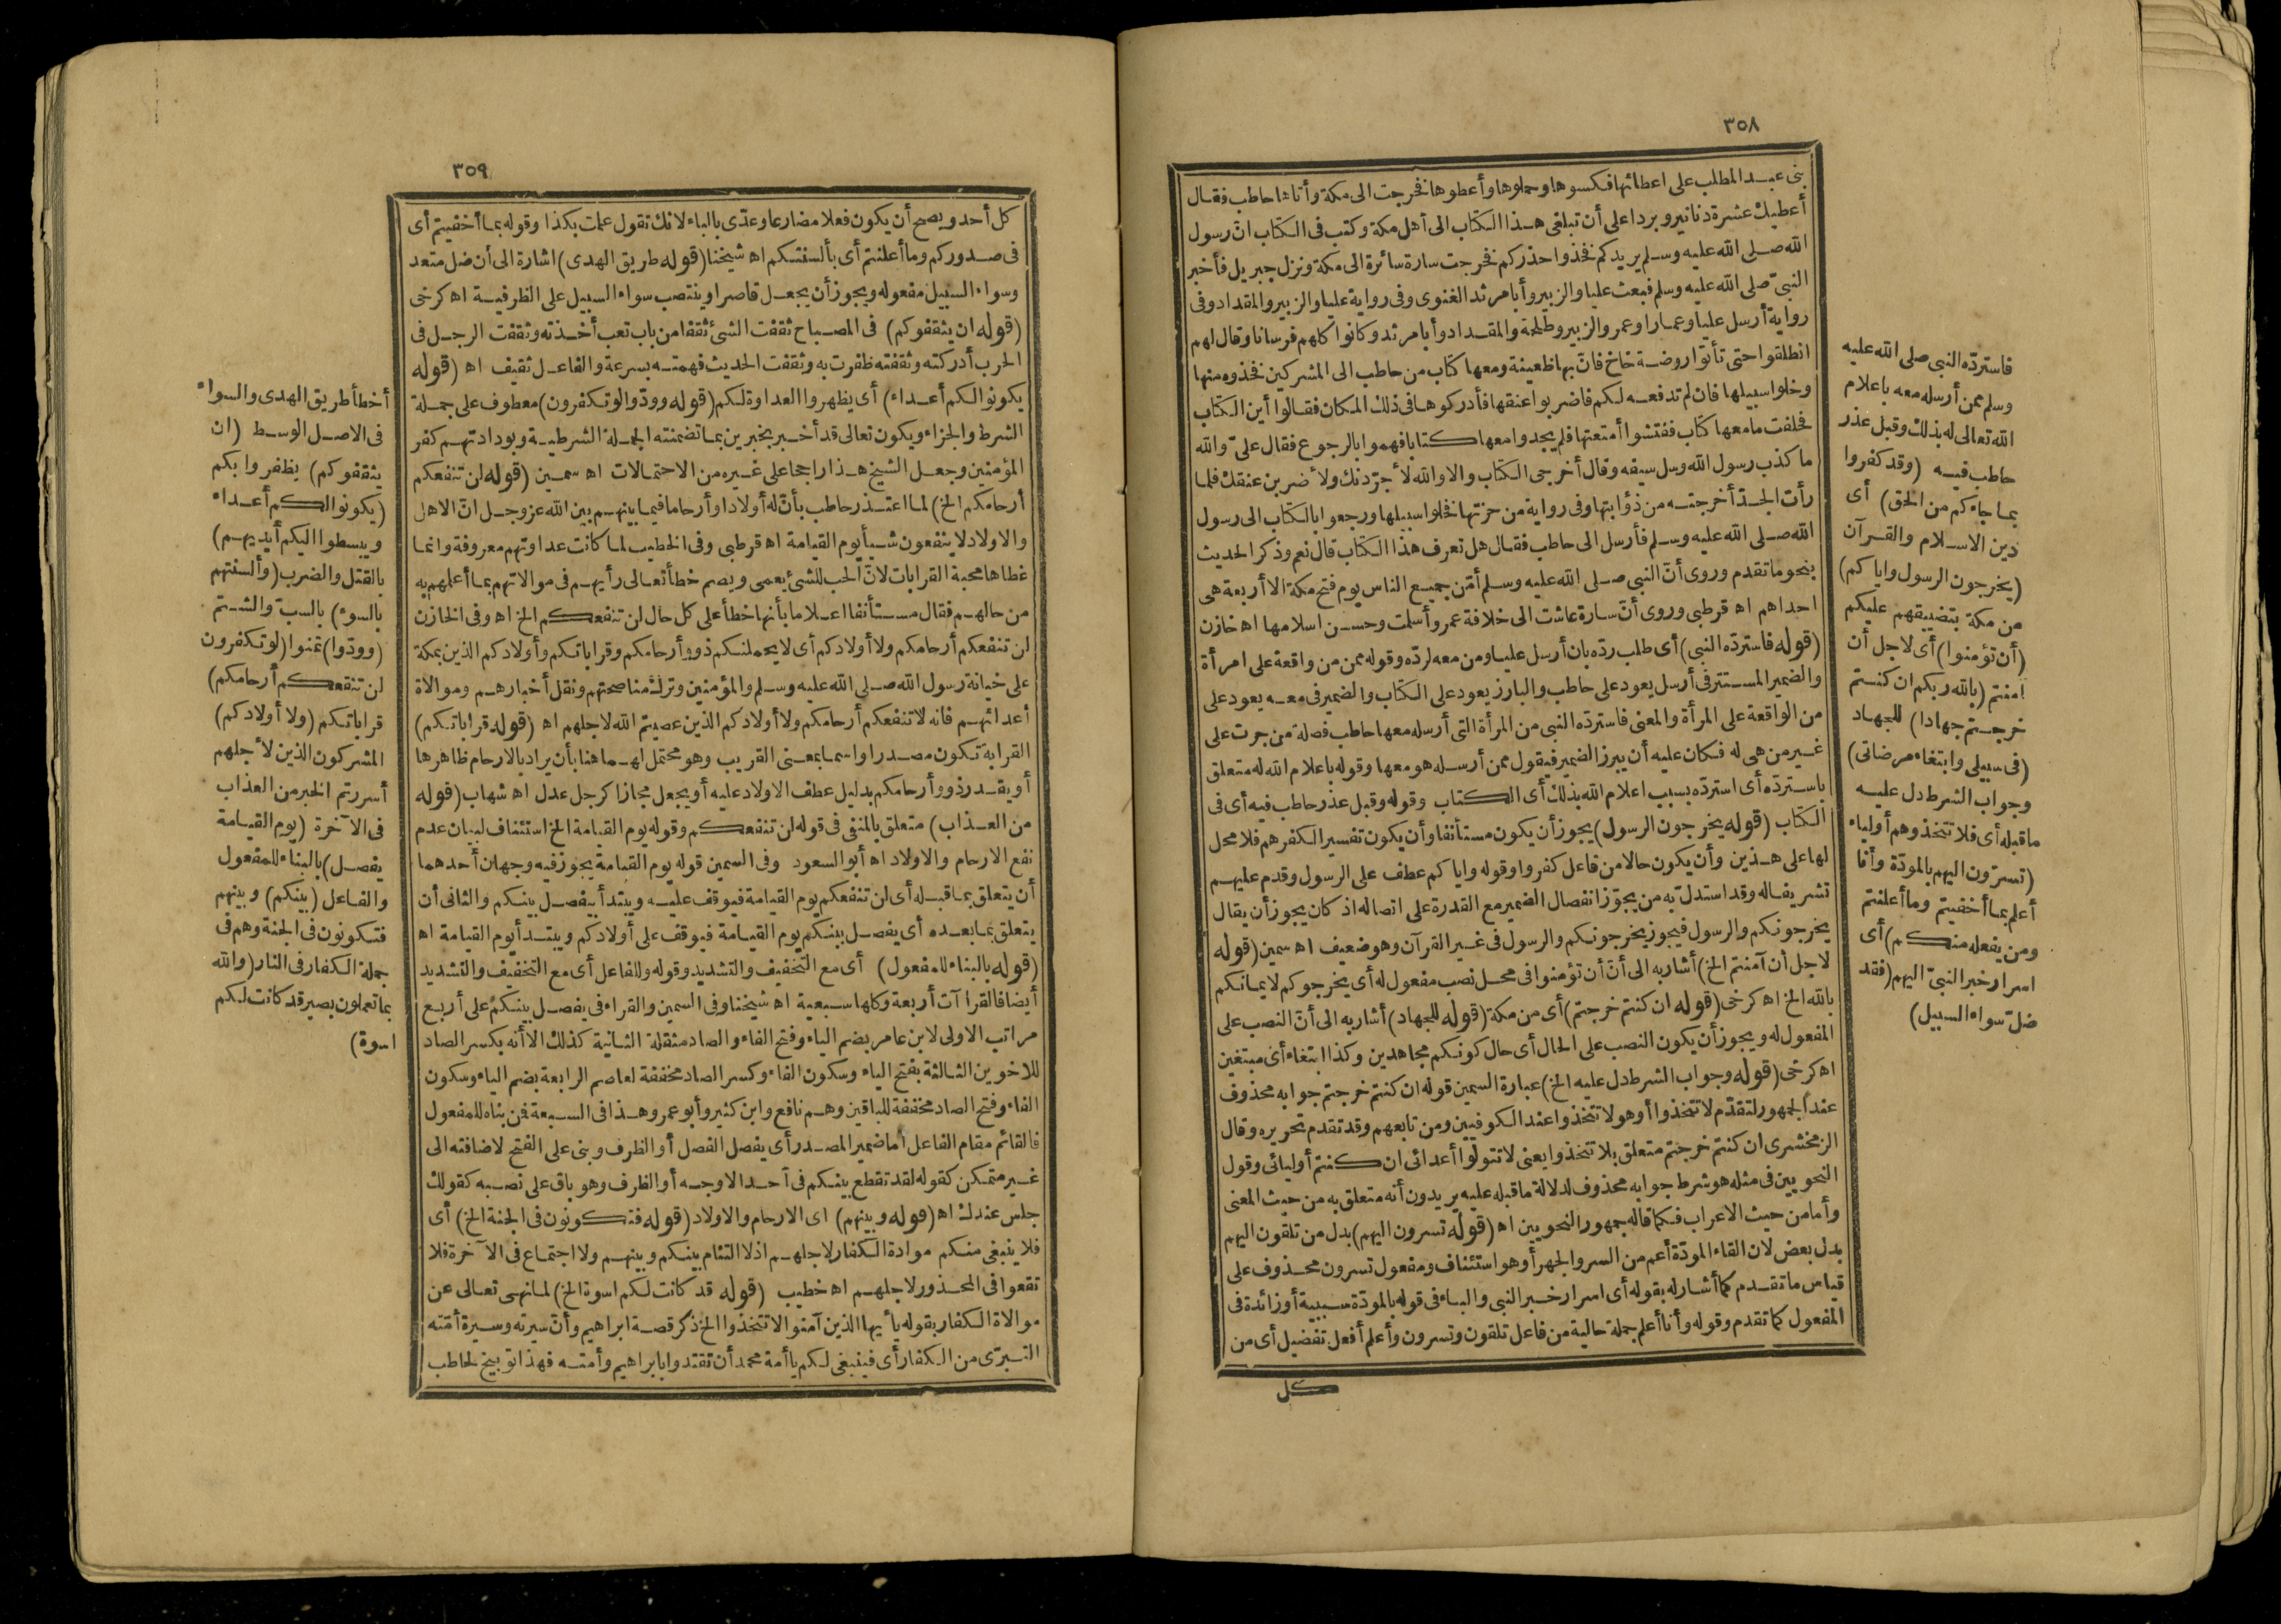 ٣٥٨
بنى عبد المطلب على اعطائها فكسوها وحملوها وأعطوها فخرجت الى مكة وأتاها حاطب فقال
أعطيك عشرة دنانير وبردا على أن تبلغى هذا الكتاب الى أهل مكة وكتب فى الكتاب ان رسول
الله صلى الله عليه وسلم يريدكم فخذوا حذركم فخرجت سارة سائرة الى مكة ونزل جبريل فأخبر
النبىّ صلى الله عليه وسلم فبعث عليا والزبير وأبا مرثد الغنوى وفى رواية عليا والزبير والمقداد وفى
رواية أرسل عليا وعمارا وعمر والزبير وطلحة والمقداد وأبا مرثد وكانوا كلهم فرسانا وقال لهم
انطلقوا حتى تأتوا روضة خاخ فان بها ظعينة ومعها كتاب من حاطب الى المشركين فخذوه منها
وخلوا سبيلها فان لم تدفعه لكم فاضربوا عنقها فأدركوها فى ذلك المكان فقالوا أين الكتاب
فحلفت ما معها كتاب ففتشوا أمتعتها فلم يجدوا معها كتابا فهموا بالرجوع فقال علىّ والله
ما كذب رسول الله وسل سيفه وقال أخرجى الكتاب والا والله لأجرّدنك ولأضربن عنقك فلما
رأت الجدّ أخرجته من ذؤابتها وفى رواية من حجزتها فخلوا سبيلها ورجعوا بالكتاب الى رسول
الله صلى الله عليه وسلم فأرسل الى حاطب فقال هل تعرف هذا الكتاب قال نعم وذكر الحديث
بنحو ما تقدم وروى أنّ النبى صلى الله عليه وسلم أمّن جميع الناس يوم فتح مكة الا أربعة هى
احداهم اه قرطبى وروى أنّ سارة عاشت الى خلافة عمر وأسلمت وحسن اسلامها اه خازن
(قوله فاستردّه النبى) أى طلب ردّه بان أرسل عليا ومن معه لردّه وقوله ممن من واقعة على امرأة
والضمير المستتر فى أرسل يعود على حاطب والبارز يعود على الكتاب والضمير فى معه يعود على
من الواقعة على المرأة والمعنى فاستردّه النبى من المرأة التى أرسله معها حاطب فصلة من جرت على
غير من هى له فكان عليه أن يبرز الضمير فيقول ممن أرسله هو معها وقوله باعلام الله له متعلق
باستردّه أى استردّه بسبب اعلام الله بذلك أى الكتاب وقوله وقبل عذر حاطب فيه أى فى
الكتاب (قوله يخرجون الرسول) يجوز أن يكون مستأنفا وأن يكون تفسيرا لكفرهم فلا محل
لها على هذين وأن يكون حالا من فاعل كفروا وقوله واياكم عطف على الرسول وقدم عليهم
تشريفا له وقد استدلّ به من يجوّز انفصال الضمير مع القدرة على اتصاله اذ كان يجوز أن يقال
يخرجونكم والرسول فيجوز يخرجونكم والرسول فى غير القرآن وهو ضعيف اه سمين (قوله
لاجل أن آمنتم الخ) أشار به الى أنّ أن تؤمنوا فى محل نصب مفعول له أى يخرجوكم لايمانكم
بالله الخ اه كرخى (قوله ان كنتم خرجتم) أى من مكة (قوله للجهاد) أشار به الى أنّ النصب على
المفعول له ويجوز أن يكون النصب على الحال أى حال كونكم مجاهدين وكذا ابتغاء أى مبتغين
اه كرخى (قوله وجواب الشرط دل عليه الخ) عبارة السمين قوله ان كنتم خرجتم جوابه محذوف
عند الجمهور لتقدّم لا تتخذوا أو هو لا تتخذوا عند الكوفيين ومن تابعهم وقد تقدم تحريره وقال
الزمخشرى ان كنتم خرجتم متعلق بلا تتخذوا يعنى لا تتولّوا أعدائى ان كنتم أوليائى وقول
النحويين فى مثله هو شرط جوابه محذوف لدلالة ما قبله عليه يريدون أنه متعلق به من حيث المعنى
وأما من حيث الاعراب فكما قاله جمهور النحويين اه (قوله تسرون اليهم) بدل من تلقون اليهم
بدل بعض لان القاء المودّة أعم من السر والجهر أو هو استئناف ومفعول تسرون محذوف على
قياس ما تقدم كما أشار له بقوله أى اسرار خبر النبى والباء فى قوله بالمودّة سببية أو زائدة فى
المفعول كما تقدم وقوله وأنا أعلم جملة حالية من فاعل تلقون وتسرون وأعلم أفعل تفضيل أى من
كل
فاستردّه النبى صلى الله عليه
وسلم ممن أرسله معه باعلام
الله تعالى له بذلك وقبل عذر
حاطب فيه (وقد كفروا
بما جاءكم من الحق) أى
دين الاسلام والقرآن
(يخرجون الرسول واياكم)
من مكة بتضييقهم عليكم
(أن تؤمنوا) أى لاجل أن
آمنتم (بالله ربكم ان كنتم
خرجتم جهادا) للجهاد
(فى سبيلى وابتغاء مرضاتى)
وجواب الشرط دل عليه
ما قبله أى فلا تتخذوهم أولياء
(تسرّون اليهم بالمودّة وأنا
أعلم بما أخفيتم وما أعلنتم
ومن يفعله منكم) أى
اسرار خبر النبىّ اليهم (فقد
ضلّ سواء السبيل)
٣٥٩
كل أحد ويصح أن يكون فعلا مضارعا وعدّى بالباء لانك تقول علمت بكذا وقوله بما أخفيتم أى
فى صدوركم وما أعلنتم أى بألسنتكم اه شيخنا (قوله طريق الهدى) اشارة الى أن ضل متعد
وسواء السبيل مفعوله ويجوز أن يجعل قاصرا وينتصب سواء السبيل على الظرفية اه كرخى
(قوله ان يثقفوكم) فى المصباح ثقفت الشئ ثقفا من باب تعب أخذته وثقفت الرجل فى
الحرب أدركته وثقفته ظفرت به وثقفت الحديث فهمته بسرعة والفاعل ثقيف اه (قوله
يكونوا لكم أعداء) أى يظهروا العداوة لكم (قوله وودّوا لو تكفرون) معطوف على جملة
الشرط والجزاء ويكون تعالى قد أخبر بخبرين بما تضمنته الجملة الشرطية وبودادتهم كفر
المؤمنين وجعل الشيخ هذا راجحا على غيره من الاحتمالات اه سمين (قوله لن تنفعكم
أرحامكم الخ) لما اعتذر حاطب بأنّ له أولادا وأرحاما فيما بينهم بين الله عز وجل انّ الاهل
والاولاد لا ينفعون شيأ يوم القيامة اه قرطبى وفى الخطيب لما كانت عداوتهم معروفة وانما
غطاها محبة القرابات لانّ الحب للشئ يعمى ويصم خطأ تعالى رأيهم فى موالاتهم بما أعلمهم به
من حالهم فقال مستأنفا اعلاما بأنها خطأ على كل حال لن تنفعكم الخ اه وفى الخازن
لن تنفعكم أرحامكم ولا أولادكم أى لا يحملنكم ذوو أرحامكم وقراباتكم وأولادكم الذين بمكة
على خيانة رسول الله صلى الله عليه وسلم والمؤمنين وترك مناصحتهم ونقل أخبارهم وموالاة
أعدائهم فانه لا تنفعكم أرحامكم ولا أولادكم الذين عصيتم الله لاجلهم اه (قوله قراباتكم)
القرابة تكون مصدرا واسما بمعنى القريب وهو محتمل لهما هنا بأن يراد بالارحام ظاهرها
أو يقدر ذوو أرحامكم بدليل عطف الاولاد عليه أو يجعل مجازا كرجل عدل اه شهاب (قوله
من العذاب) متعلق بالمنفى فى قوله لن تنفعكم وقوله يوم القيامة الخ استئناف لبيان عدم
نفع الارحام والاولاد اه أبو السعود وفى السمين قوله يوم القيامة يجوز فيه وجهان أحدهما
أن يتعلق بما قبله أى لن تنفعكم يوم القيامة فيوقف عليه ويبتدأ يفصل بينكم والثانى أن
يتعلق بما بعده أى يفصل بينكم يوم القيامة فيوقف على أولادكم ويبتدأ يوم القيامة اه
(قوله بالبناء للمفعول) أى مع التخفيف والتشديد وقوله وللفاعل أى مع التخفيف والتشديد
أيضا فالقرا آت أربعة وكلها سبعية اه شيخنا وفى السمين والقراء فى يفصل بينكم على أربع
مراتب الاولى لابن عامر بضم الياء وفتح الفاء والصاد مثقلة الثانية كذلك الا أنه بكسر الصاد
للاخوين الثالثة بفتح الياء وسكون الفاء وكسر الصاد مخففة لعاصم الرابعة بضم الياء وسكون
الفاء وفتح الصاد مخففة للباقين وهم نافع وابن كثير وأبو عمر وهذا فى السبعة فمن بناه للمفعول
فالقائم مقام الفاعل اما ضمير المصدر أى يفصل الفصل أو الظرف وبنى على الفتح لاضافته الى
غير متمكن كقوله لقد تقطع بينكم فى أحد الاوجه أو الظرف وهو باق على نصبه كقولك
جلس عندك اه (قوله وبينهم) اى الارحام والاولاد (قوله فتكونون فى الجنة الخ) أى
فلا ينبغى منكم موادة الكفار لاجلهم اذ لا التئام بينكم وبينهم ولا اجتماع فى الآخرة فلا
تقعوا فى المحذور لاجلهم اه خطيب (قوله قد كانت لكم اسوة الخ) لما نهى تعالى عن
موالاة الكفار بقوله يأيها الذين آمنوا لا تتخذوا الخ ذكر قصة ابراهيم وأنّ سيرته وسيرة أمّته
التبرّى من الكفار أى فينبغى لكم يا أمة محمد أن تقتدوا بابراهيم وأمته فهذا توبيخ لحاطب
أخطأ طريق الهدى والسواء
فى الاصل الوسط (ان
يثقفوكم) يظفروا بكم
(يكونوا لكم أعداء
ويبسطوا اليكم أيديهم)
بالقتل والضرب (وألسنتهم
بالسوء) بالسبّ والشتم
(وودّوا) تمنوا (لو تكفرون
لن تنفعكم أرحامكم)
قراباتكم (ولا أولادكم)
المشركون الذين لأجلهم
أسررتم الخبر من العذاب
فى الآخرة (يوم القيامة
يفصل) بالبناء للمفعول
والفاعل (بينكم) وبينهم
فتكونون فى الجنة وهم فى
جملة الكفار فى النار (والله
بما تعملون بصير قد كانت لكم
اسوة)